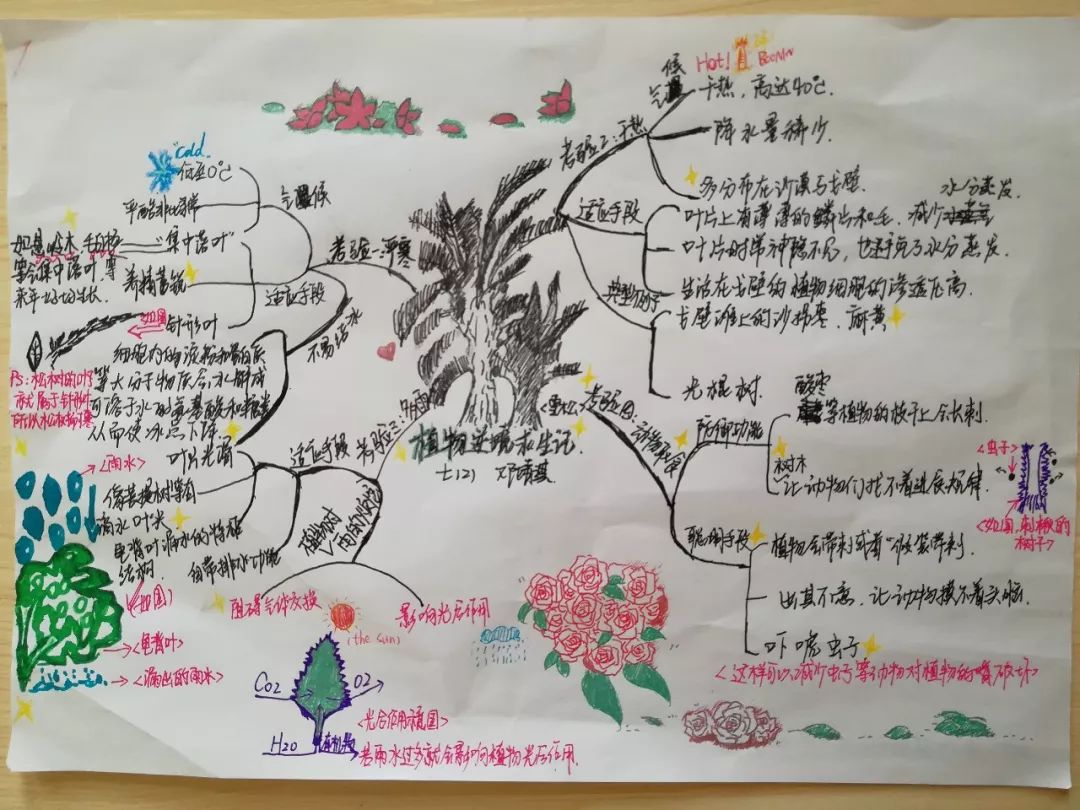 植物逆境求生记
七(2)
考验一:严寒
气候
"Cold"
低至0℃
严酷
适应手段
"集中落叶"
等会集中落叶,等
来年好好生长。
养精蓄锐
<如图
针形叶
Ps:松树的叶子
就属于针形叶
所以松树耐寒
不易结冰
细胞内的淀粉和蛋白质
等大分子物质会水解成
可溶于水的氨基酸和糖类
从而使冰点下降
考验二:干热
气候
Hot!
干热,高达40℃.
降水量稀少.
多分布在沙漠与戈壁.
适应手段
叶片上有薄薄的鳞片和毛,减少水分蒸发.
叶片时常神隐不见,也避免了水分蒸发.
生活在戈壁的植物细胞的渗透压高.
典型例子
戈壁滩上的沙拐枣.
光棍树.
考验三:多雨
适应手段
叶片光滑
像菩提树等有
滴水叶尖
龟背叶滴水的特殊
结构.
自带排水功能
<雨水>
<如图>
<龟背叶>
<漏出的雨水>
阻碍气体交换
影响光合作用
(the sun)
CO2
O2
H2O
有机物
<光合作用简图>
若雨水过多就会影响植物光合作用.
考验四:动物取食
防御功能
酸枣
等植物的枝干上会长刺.
树木
让动物们找不着进食规律.
<虫子>
<如图,刺楸的
树干>
聪明手段
植物会带刺或者"假装带刺.
出其不意,让动物摸不着头脑.
吓唬虫子
<这样可以减少虫子等动物对植物的破坏>